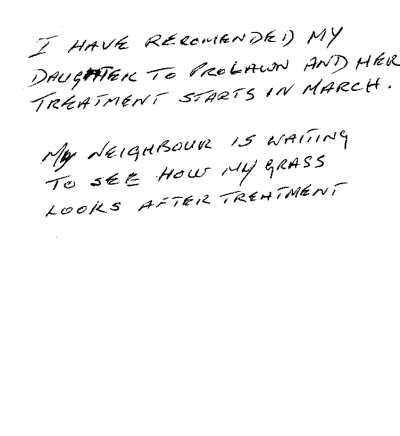 I HAVE RECOMENDED MY
DAUGHTER TO PROLAWN AND HER
TREATMENT STARTS IN MARCH.
MY NEIGHBOUR IS WAITING
TO SEE HOW MY GRASS
LOOKS AFTER TREATMENT